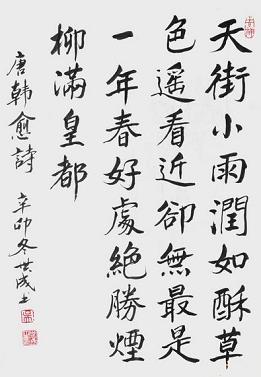 天街小雨潤如酥草
色遥看近卻無最是
一年春好處絶勝煙
柳滿皇都
唐韓愈詩
辛卯冬世成書